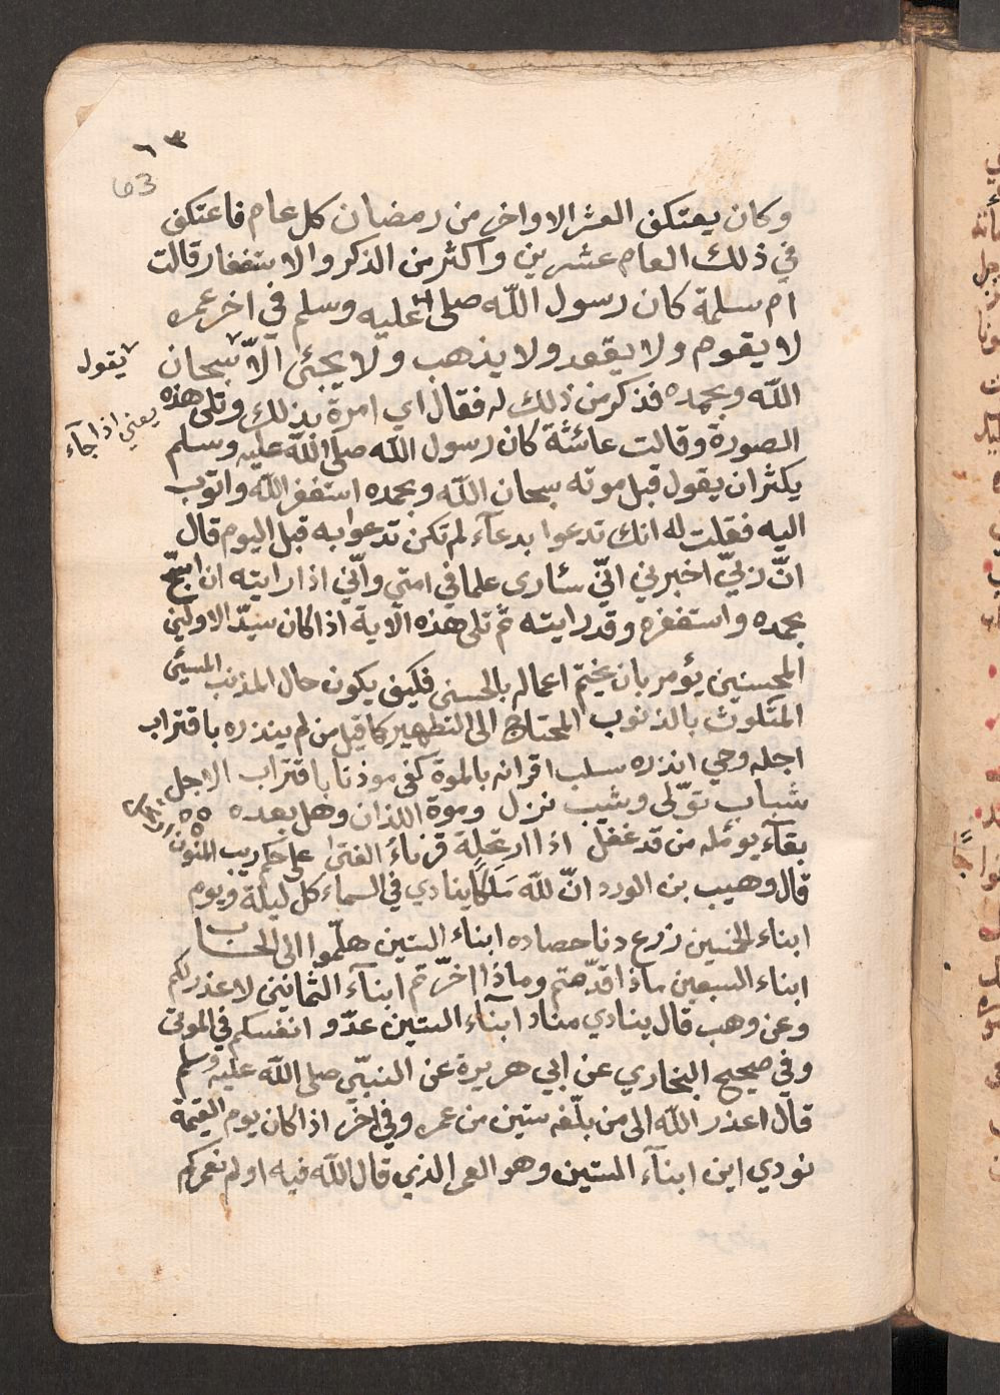 ٦٣
63
وكان يعتكف العشر الاواخر من رمضان كل عام فاعتكف
في ذلك العام عشرين واكثر من الذكر والاستغفار قالت
ام سلمة كان رسول الله صلى الله عليه وسلم في اخر عمره
لا يقوم ولا يقعد ولا يذهب ولا يجئى الّا سبحان
يقول
الله وبحمده فذكر من ذلك له فقال اي امرة بذلك وتلى هذه
يعني اذا جآء
الصورة وقالت عائشة كان رسول الله صلى الله عليه وسلم
يكثر ان يقول قبل موته سبحان الله وبحمده استغفر الله واتوب
اليه فقلت له انك تدعوا بدعآء لم تكن تدعوا به قبل اليوم قال
انّ ربّي اخبرني انّي سئارى علما في امتي وانّي اذا رايته ان اسبّح
بحمده واستغفره وقد رايته ثم تلى هذه الاية اذا كان سيّد الاولين
المحسنين يؤمر بان يختم اعماله بالحسنى فكيف يكون حال المذنب المسيئى
المتلوث بالذنوب المحتاج الى التطهير كما قيل من لم ينذره باقتراب
اجله وحي انذره سلب اقرانه بالموة كفى موذنا باقتراب الاجل
شباب تولّى وشيب نزل وموة اللذان وهل بعده
بقآء يومله من قد غفل اذا ارتحلة قرناءُ الفتى على حكم ريب المنون
قال وهيب بن الورد انّ لله مَلَكًا ينادي في السماء كل ليلة ويوم
ابناء الخمسين زرع دنا حصاده ابناء الستين هلمّوا الى الحساب
ابناء السبعين ماذا قدّمتم وماذا اخرّتم ابنآء الثمانين لا عذر لكم
وعن وهب قال ينادي مناد ابنآء الستين عدّو انفسكم في الموتى
وفي صحيح البخاري عن ابي هريرة عن النبّي صلى الله عليه وسلم
قال اعذر الله الى من بلّغه ستين من عمره وفي اخر اذا كان يوم القيمة
نودي اين ابنآء الستين وهو العمر الذي قال الله فيه اولم نعمركم